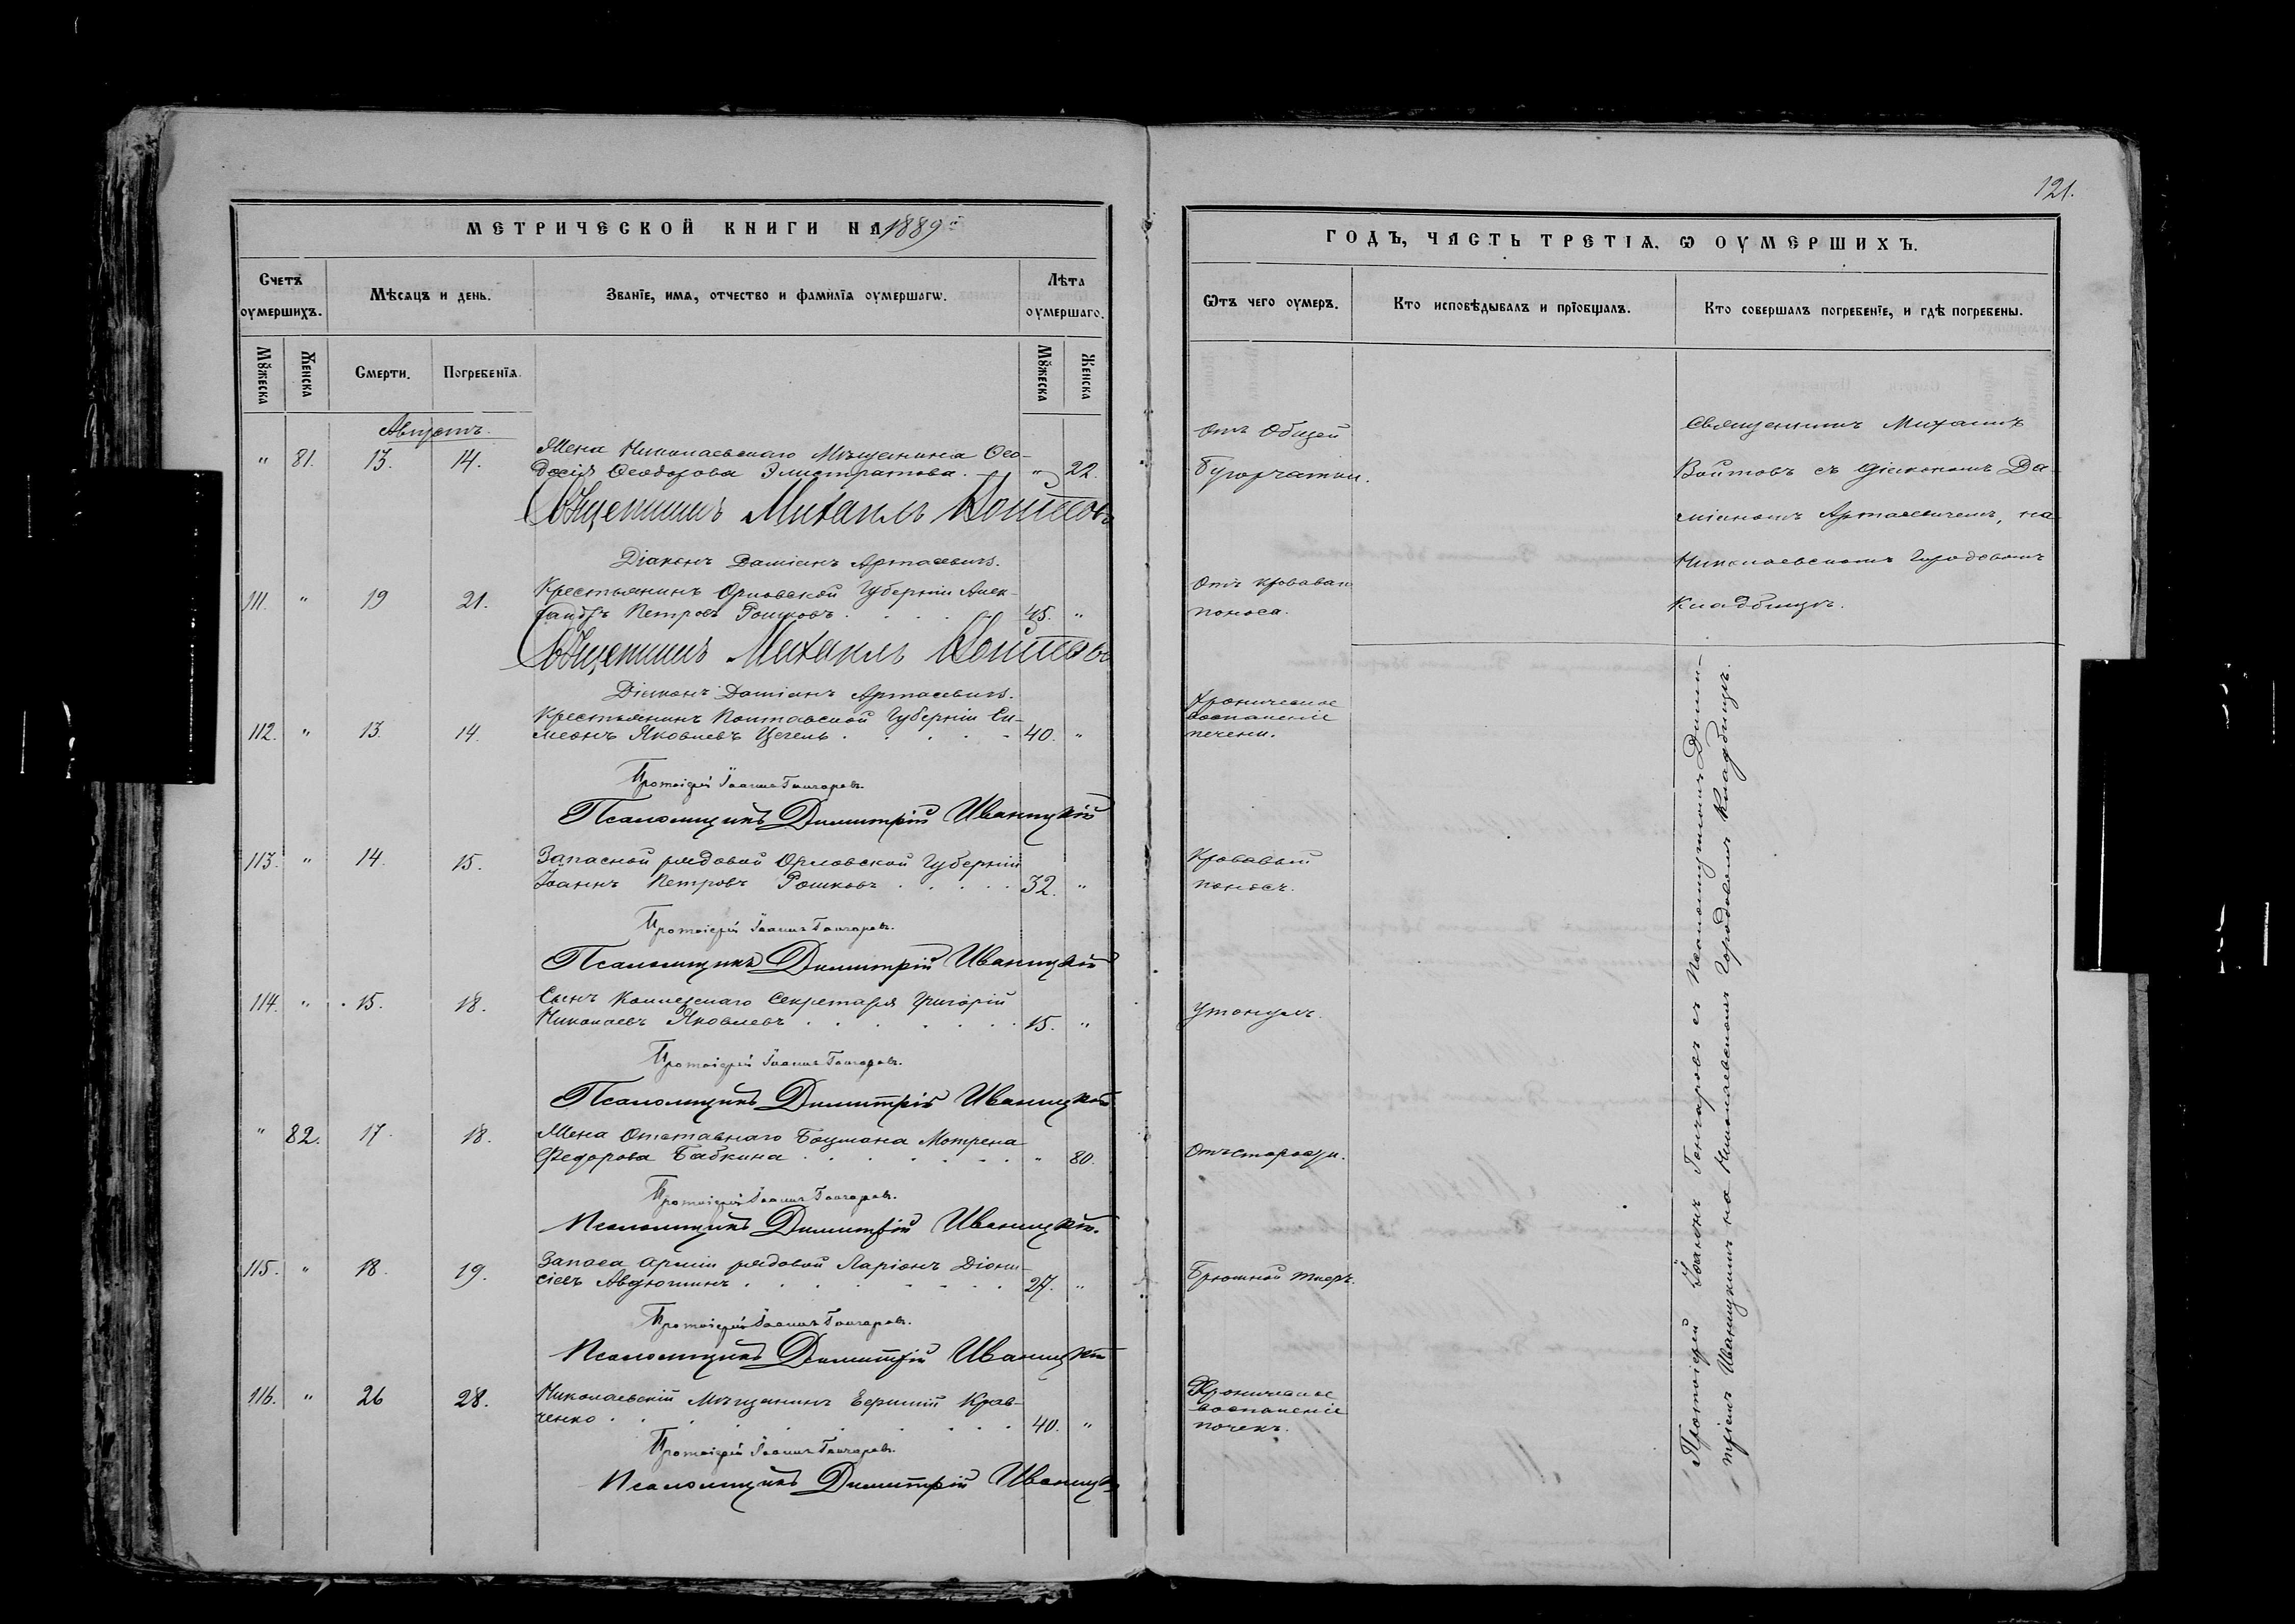 121.
МЕТРИЧЕСКОЙ КНИГИ НА 1889й
ГОДЪ, ЧАСТЬ ТРЕТІѦ. Ѡ ОУМЕРШИХЪ.
Счетъ оумершихъ.
Мѣсѧцъ и день.
Званїе, имѧ, отчество и фамилїѧ оумершагѡ.
Лѣта оумершаго.
Ѿтъ чего оумеръ.
Кто исповѣдывалъ и прїобщалъ.
Кто совершалъ погребенїе, и гдѣ погребены.
Мꙋжеска
Женска
Смерти.
Погребенїѧ.
Мꙋжеска
Женска
Августъ.
" 81. 13. 14. Жена Николаевскаго Мѣщанина Ѳео-
досія Ѳеодорова Элистратова. " 22.
Отъ Общей
Бугорчатки.
Священникъ Михаилъ
Войтовъ съ Діакономъ Да-
міаномъ Артасевичемъ, на
Николаевскомъ Городовомъ
Кладбищѣ.
Священникъ Михаилъ Войтовъ
Діаконъ Даміанъ Артасевичъ.
111. " 19 21. Крестьянинъ Орловской Губерніи Алек-
сандръ Петровъ Рошковъ 45. "
Отъ кроваваго
поноса.
Священникъ Михаилъ Войтовъ
Діаконъ Даміанъ Артасевичъ.
112. " 13. 14. Крестьянинъ Полтавской Губерніи Си-
меонъ Яковлевъ Цегель 40. "
Хроническое
воспаленіе
печени.
Протоіерей Іоаннъ Гончаровъ.
Псаломщикъ Димитрій Иваницкій
113. " 14. 15. Запасной рядовой Орловской Губерніи
Іоаннъ Петровъ Рошковъ 32. "
Кровавый
поносъ.
Протоіерей Іоаннъ Гончаровъ.
Псаломщикъ Димитрій Иваницкій
114. " 15. 18. Сынъ Коллежскаго Секретаря Григорій
Николаевъ Яковлевъ 15. "
Утонулъ.
Протоіерей Іоаннъ Гончаровъ.
Псаломщикъ Димитрій Иваницкій
" 82. 17. 18. Жена Отставнаго Боцмана Мотрена
Федорова Бабкина " 80.
Отъ старости.
Протоіерей Іоаннъ Гончаровъ.
Псаломщикъ Димитрій Иваницкій.
115. " 18. 19. Запаса арміи рядовой Ларіонъ Діони-
сіевъ Авдюшинъ 27. "
Брюшной тифъ.
Протоіерей Іоаннъ Гончаровъ.
Псаломщикъ Димитрій Иваницкій
116. " 26 28. Николаевскій Мѣщанинъ Ефимій Крав-
ченко 40. "
Хроническое
воспаленіе
почекъ.
Протоіерей Іоаннъ Гончаровъ.
Псаломщикъ Димитрій Иваницкій
Протоіерей Іоаннъ Гончаровъ съ Псаломщикомъ Дими-
тріемъ Иваницкимъ на Николаевскомъ Городовомъ Кладбищѣ.